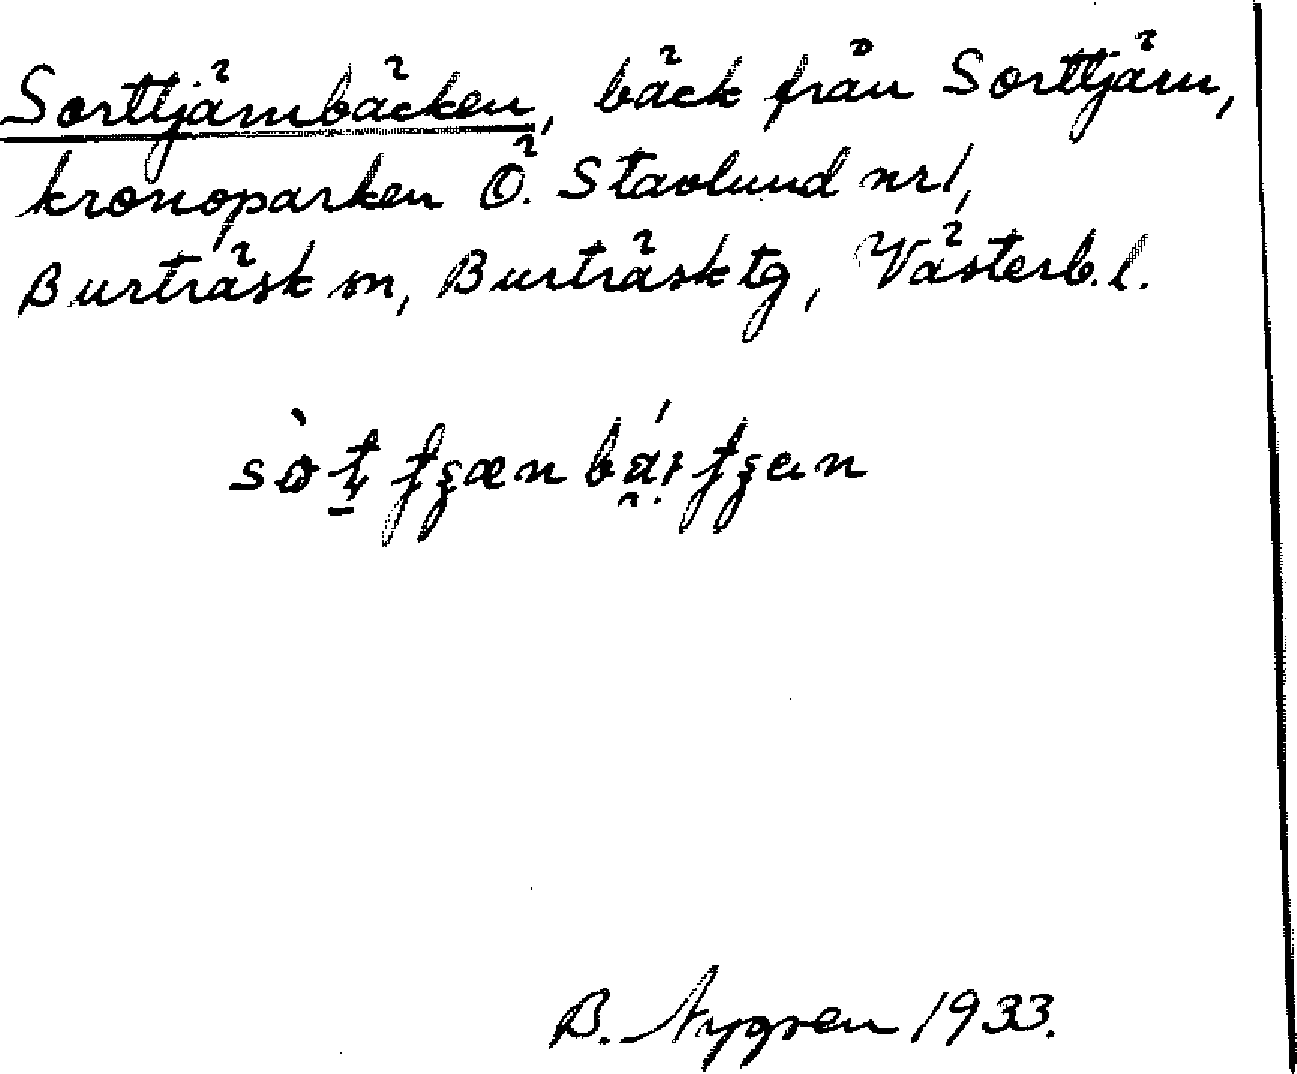 Sorttjärnbäcken, bäck från Sorttjärn,
kronoparken Ö. Stavlund nr 1,
Burträsk sn, Burträsk tg, Västerb. l.
B. Nygren 1933.